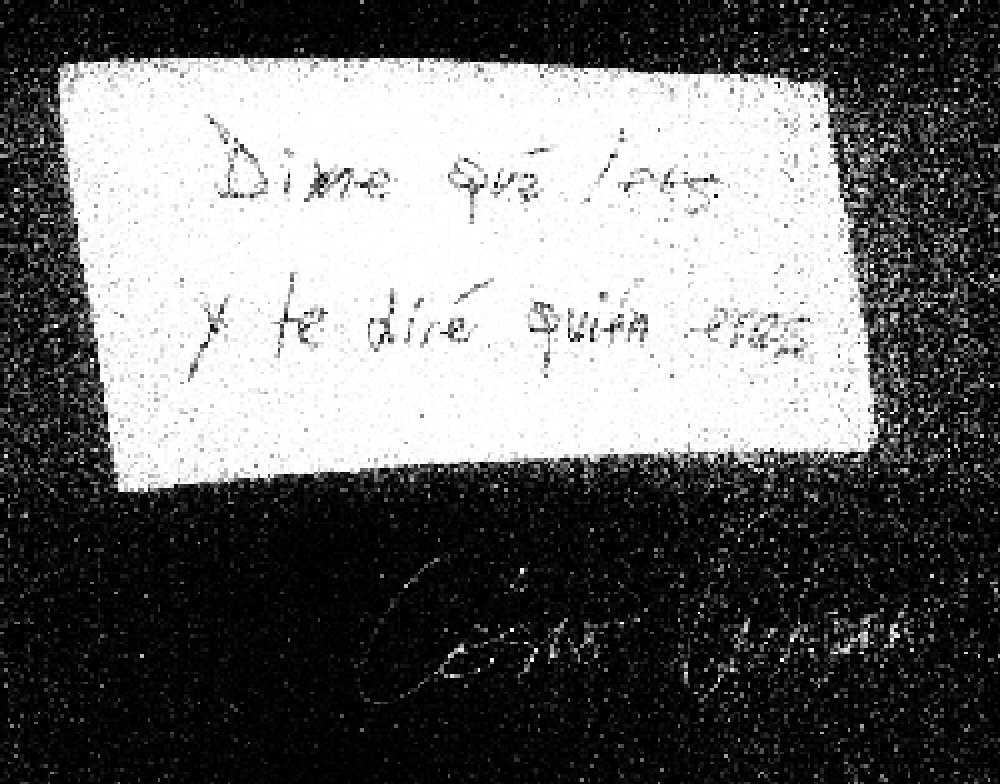 Dime qué lees
y te diré quién eres